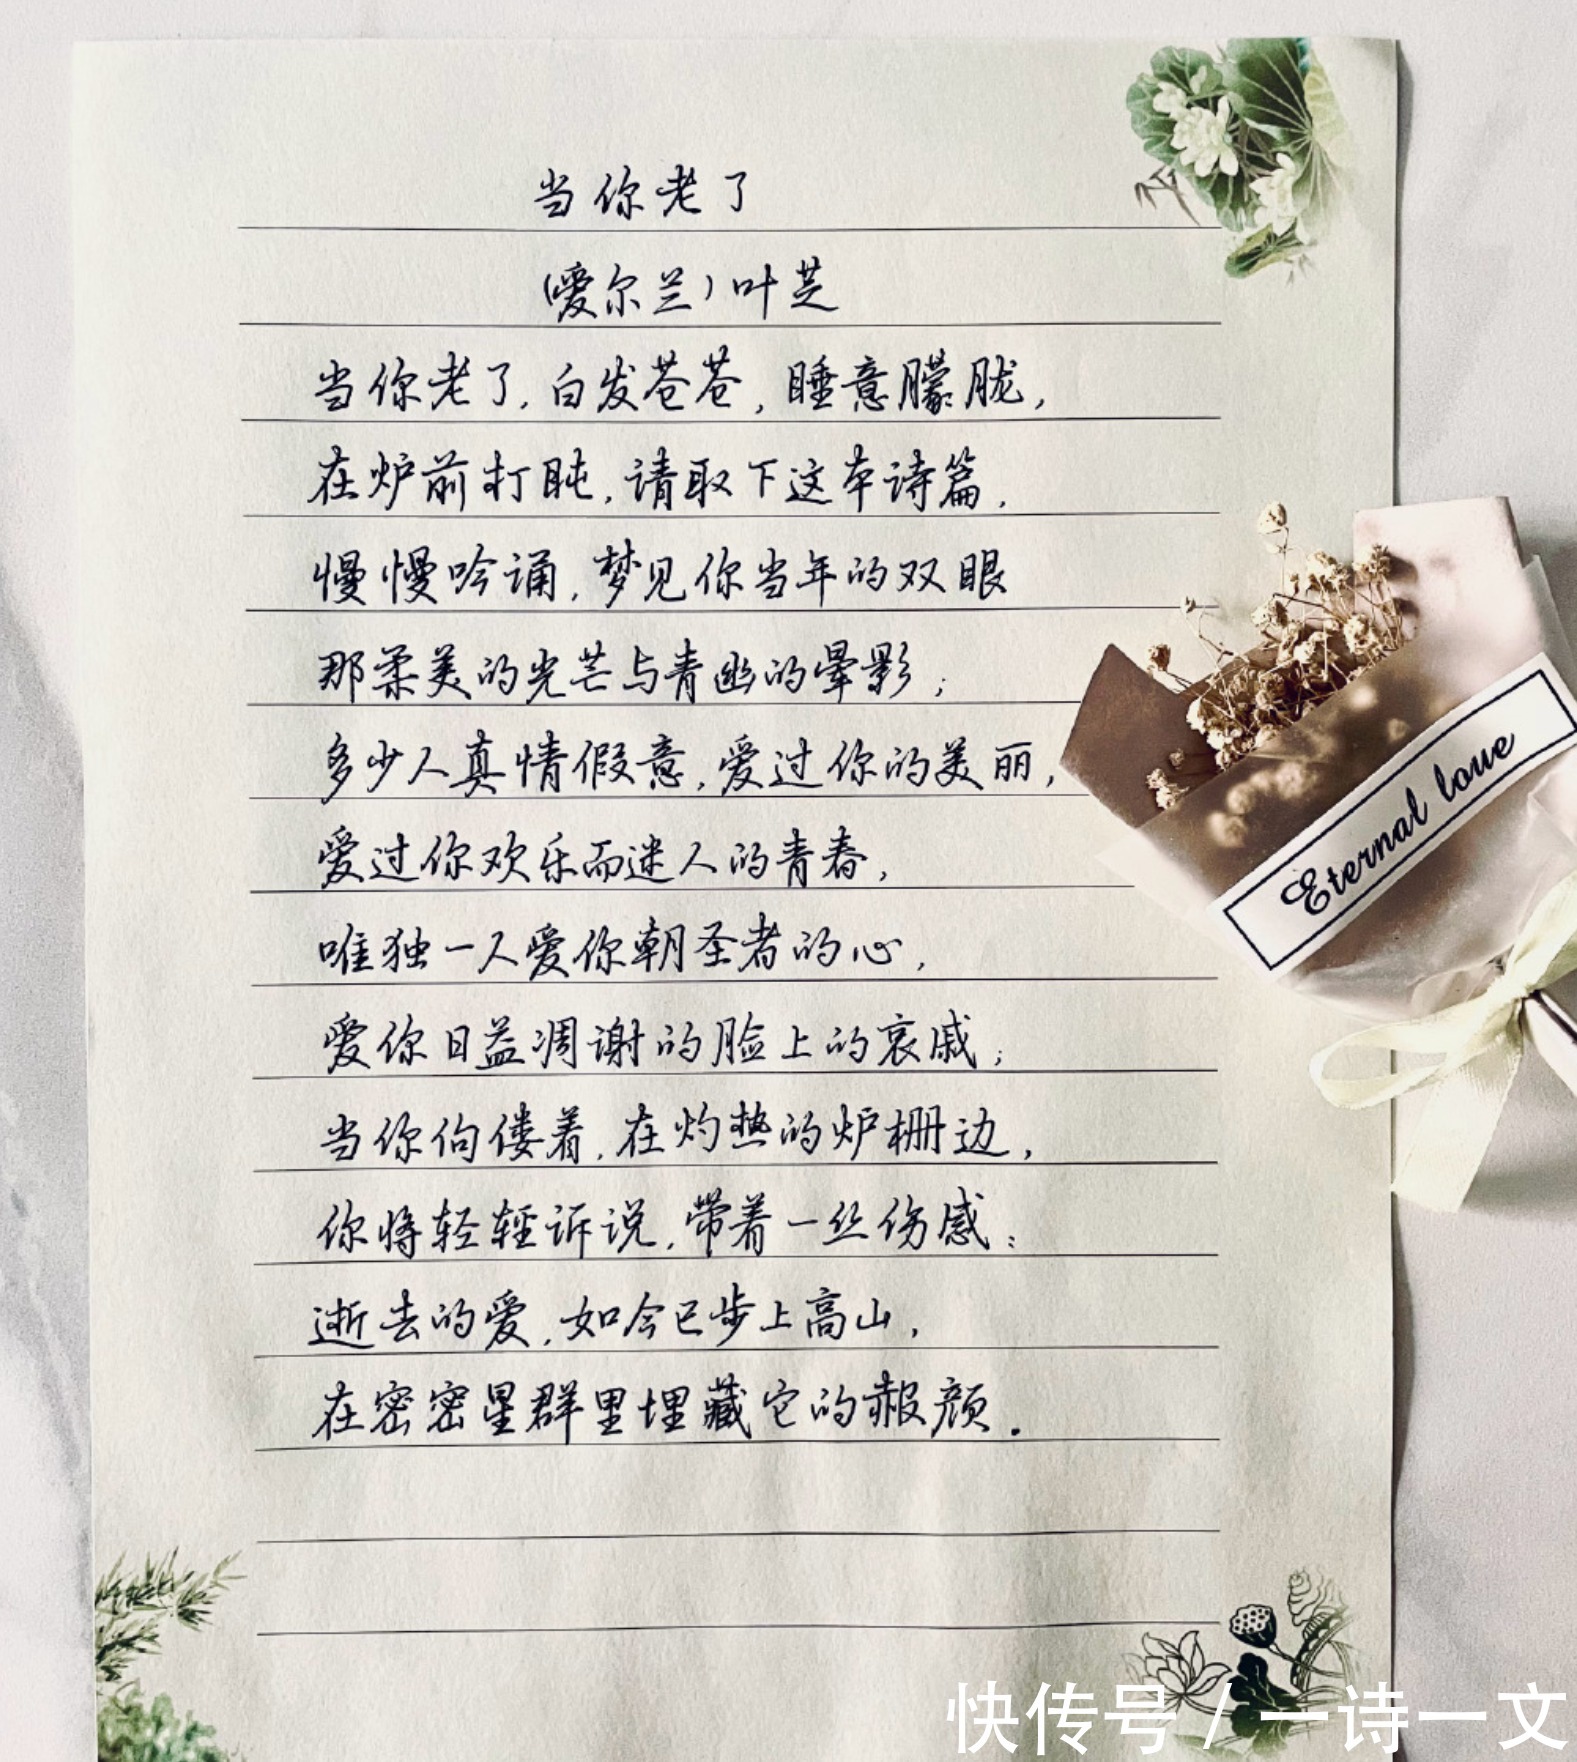 当你老了
(嗳尔兰)叶芝
当你老了,白发苍苍,睡意朦胧,
在炉前打盹,请取下这本诗篇,
慢慢吟诵,梦见你当年的双眼
那柔美的光芒与青幽的晕影;
多少人真情假意,爱过你的美丽,
爱过你欢乐而迷人的青春,
唯独一人爱你朝圣者的心,
爱你日益凋谢的脸上的哀戚;
当你佝偻着,在灼热的炉栅边,
你将轻轻诉说,带着一丝伤感:
逝去的爱,如今已步上高山,
在密密星群里埋藏它的赧颜.
Eternal love
快传号/一诗一文